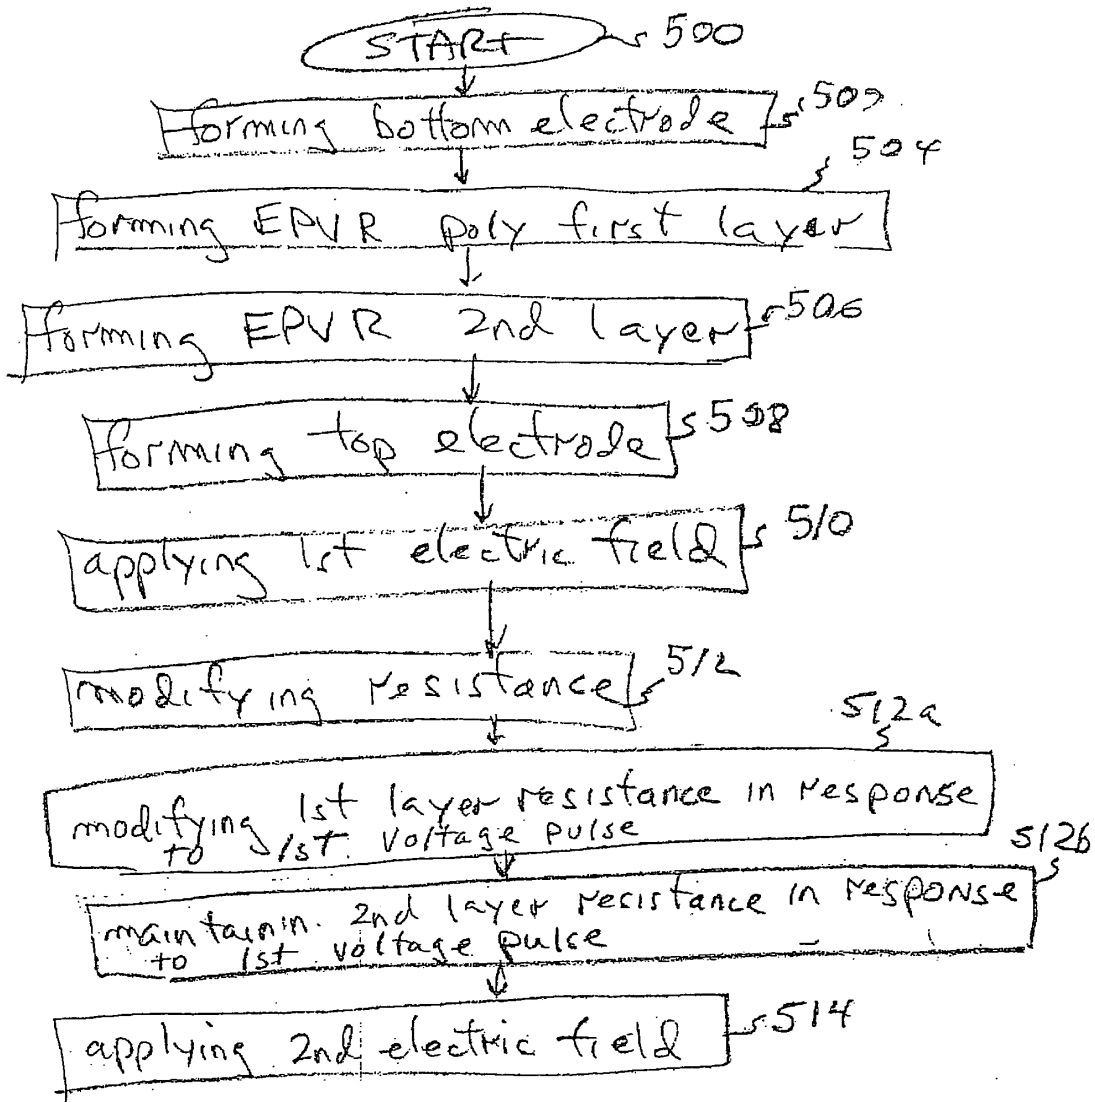 START 500
forming bottom electrode 502
504
forming EPVR poly first layer
forming EPVR 2nd layer 506
forming top electrode 508
applying 1st electric field 510
modifying resistance 512
512a
modifying 1st layer resistance in response
to 1st voltage pulse
512b
maintainin. 2nd layer resistance in response
to 1st voltage pulse
applying 2nd electric field 514